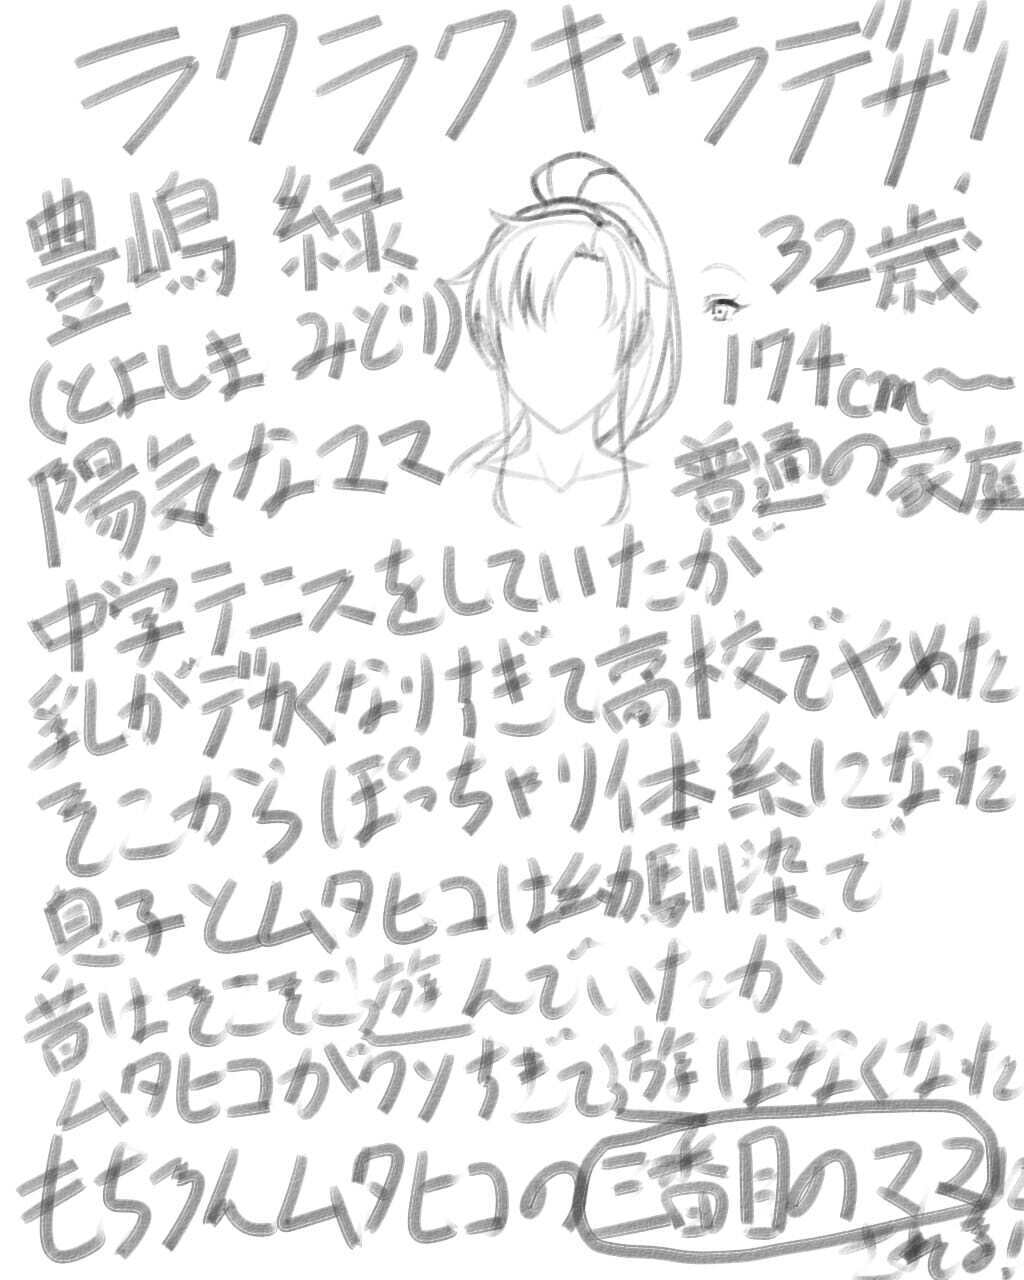 ラクラクキャラデザ!
豊嶋 緑
32歳
(とよしま みどり)
174cm〜
陽気なママ
普通の家庭
中学テニスをしていたが
乳がデカくなりすぎて高校でやめた
そこからぽっちゃり体系になった
息子とムタヒコは幼馴染で
昔はそこそこ遊んでいたが
ムタヒコがウソすぎて遊ばなくなった
もちろんムタヒコの三番目のママ
にされる!